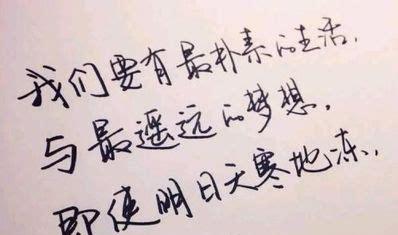 我们要有最朴素的生活,
与最遥远的梦想,
即使明日天寒地冻,